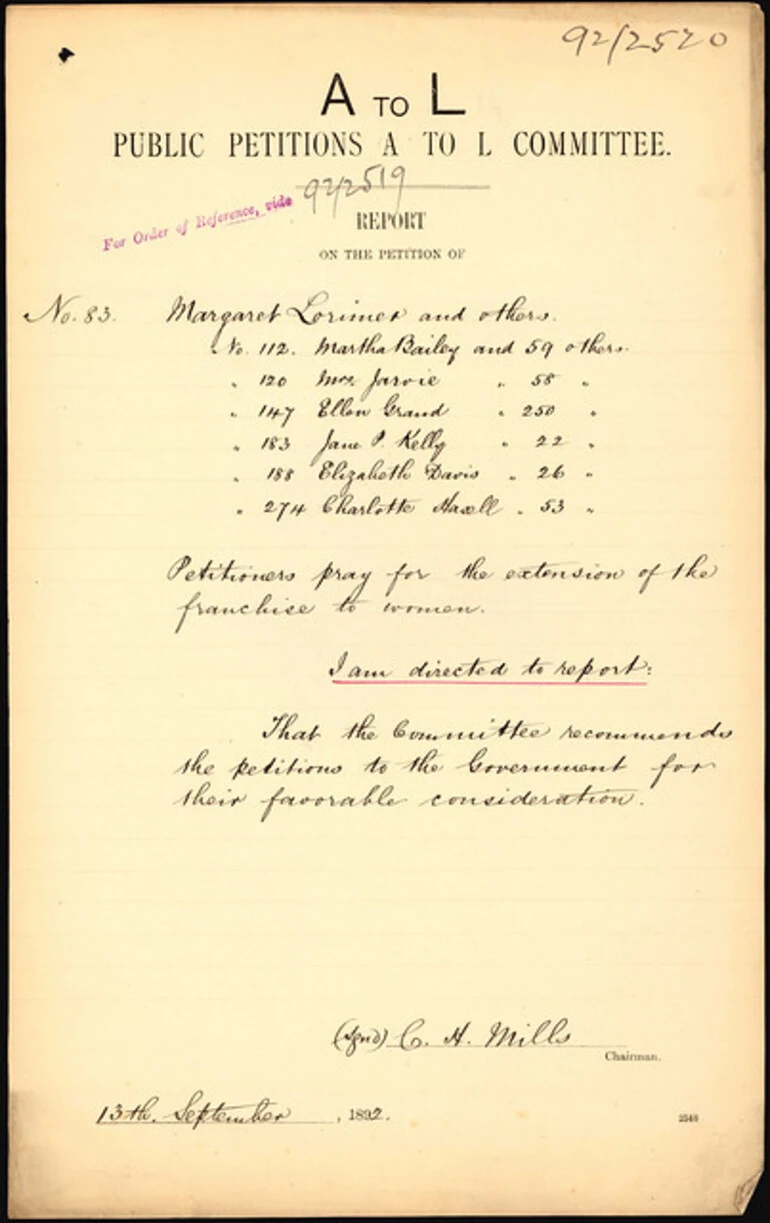 92/2520
A TO L
PUBLIC PETITIONS A TO L COMMITTEE.
For Order of Reference, vide
92/2519
REPORT
ON THE PETITION OF
No. 83. Margaret Lorimer and others.
No. 112. Martha Bailey and 59 others.
" 120 Mrs Jarvie " 58 "
" 147 Ellen Grand " 250 "
" 183 Jane P. Kelly " 22 "
" 188 Elizabeth Davis " 26 "
" 274 Charlotte Haxell " 53 "
Petitioners pray for the extension of the
franchise to women.
I am directed to report:
That the Committee recommends
the petitions to the Government for
their favorable consideration.
(sgnd) C. H. Mills
Chairman.
13th. September, 1892.
2348